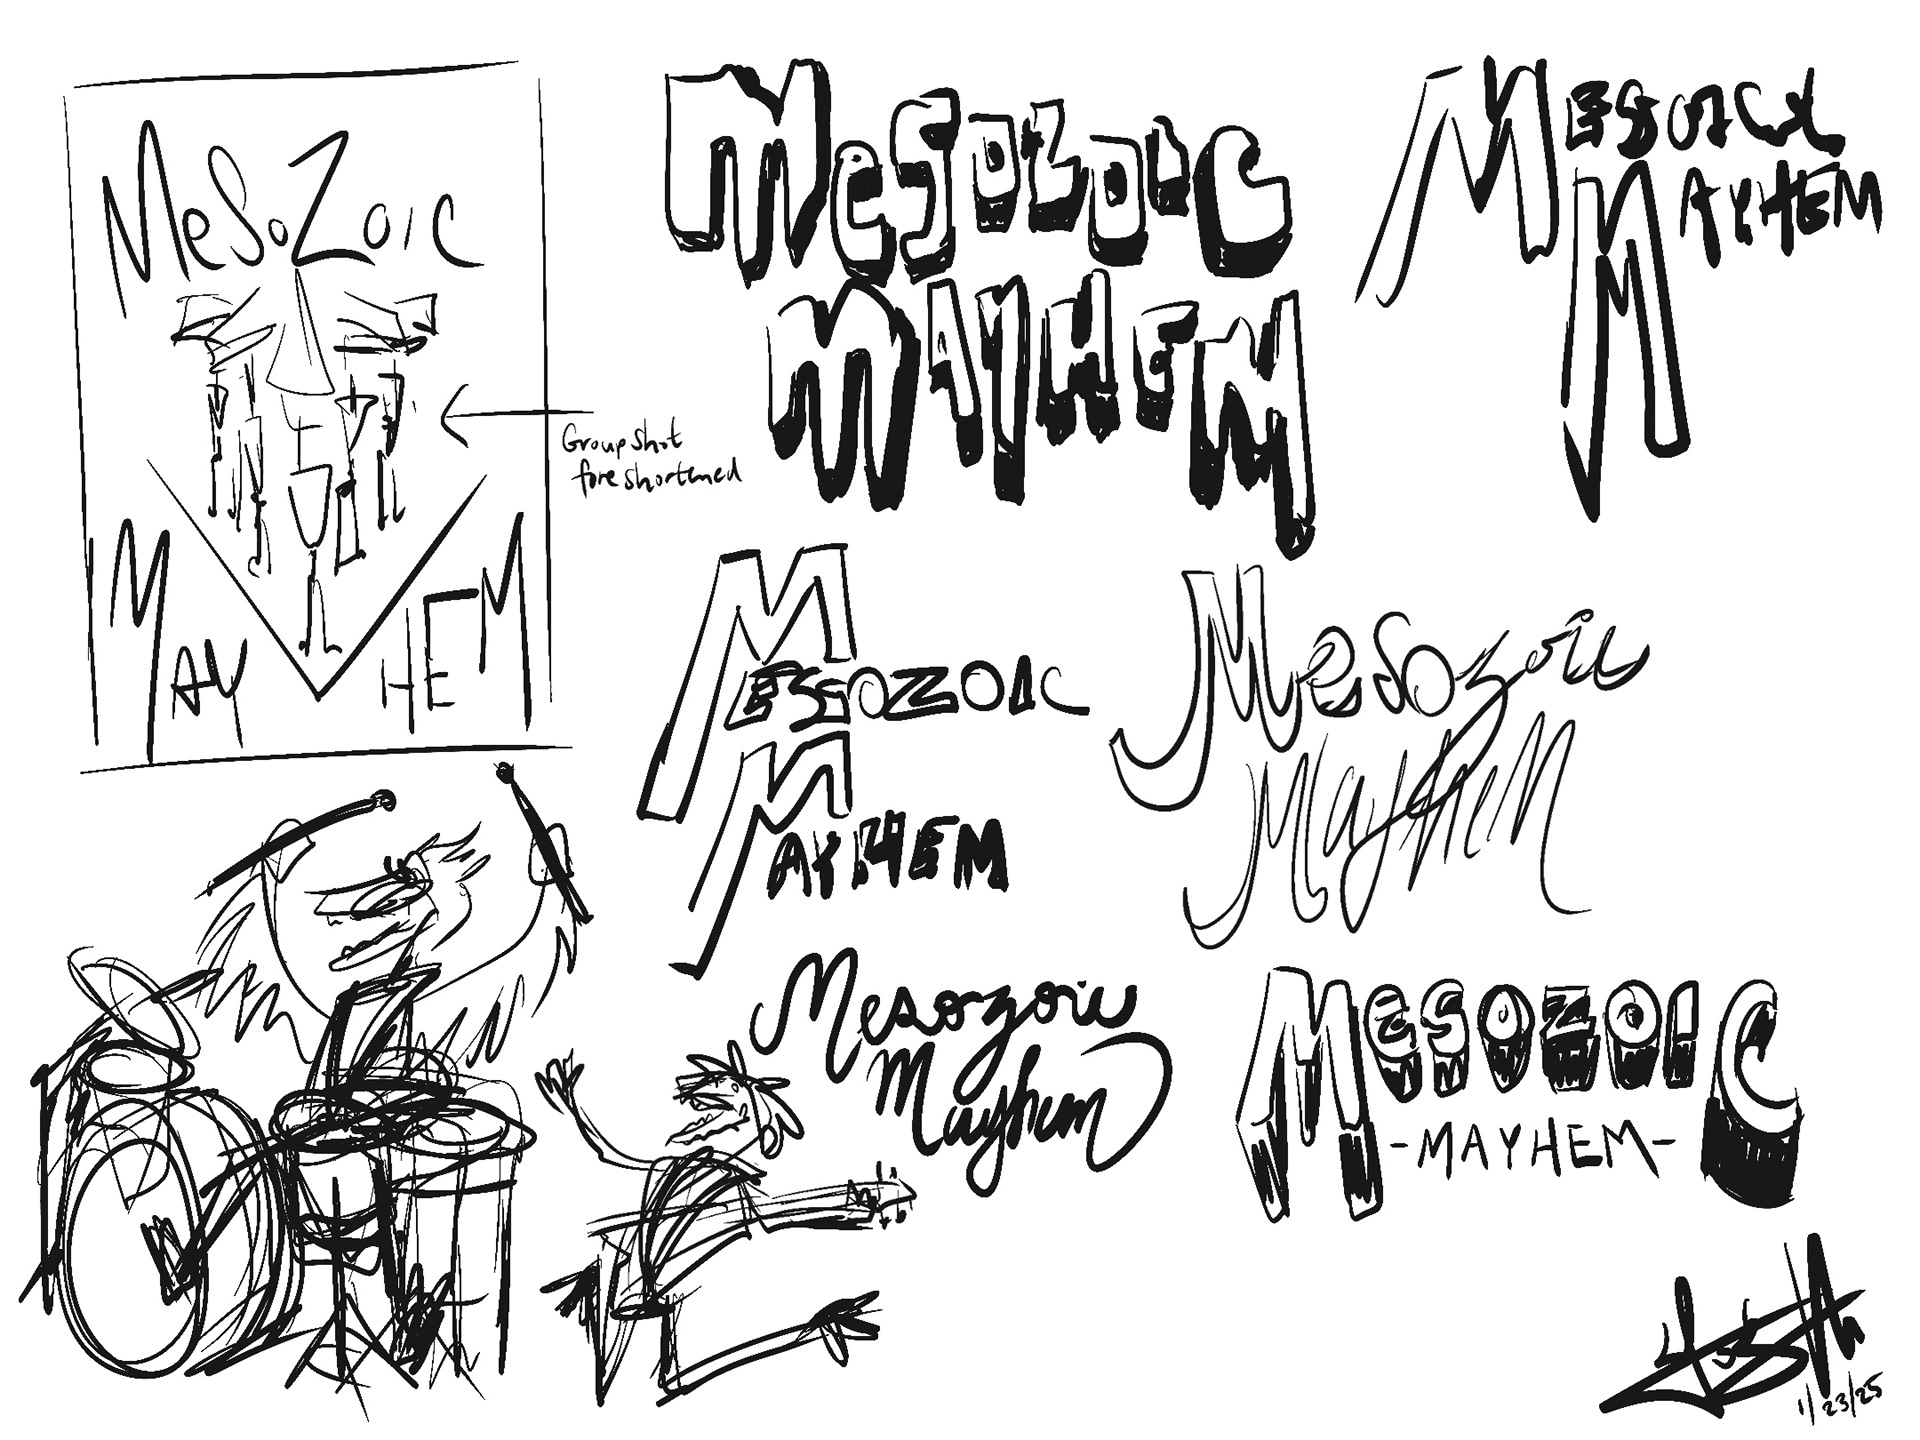 MeSoZoic
MAYHEM
Group shot
foreshortened
MeSOZOIC
MAYHEM
MESOZOIC
MAYHEM
MESOZOIC
MAYHEM
Mesozoic
MayheM
Mesozoic
Mayhem
MESOZOIC
-MAYHEM-
1/23/25